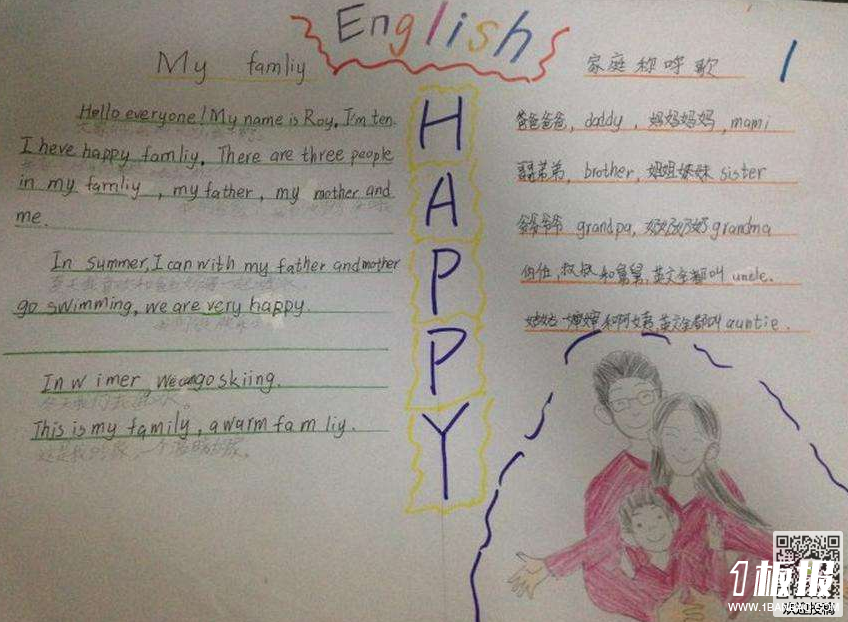 English
My famliy
Hello everyone! My name is Roy. I'm ten.
I heve happy famliy. There are three people
in my famliy , my father , my mother and
me.
In summer, I can with my father and mother
go swimming, we are very happy.
In wimer, we can go skiing.
This is my family, a warm famliy.
这是我的家,一个温暖的家。
HAPPY
家庭称呼歌
爸爸爸爸, daddy , 妈妈妈妈 , mami
哥哥弟弟, brother, 姐姐妹妹 sister
爷爷爷爷 grandpa, 奶奶奶奶 grandma
伯伯, 叔叔和舅舅, 英文全都叫 uncle.
姑姑 婶婶和阿姨, 英文全都叫 auntie .
1板报
WWW.1BANBAO.COM
欢迎投稿